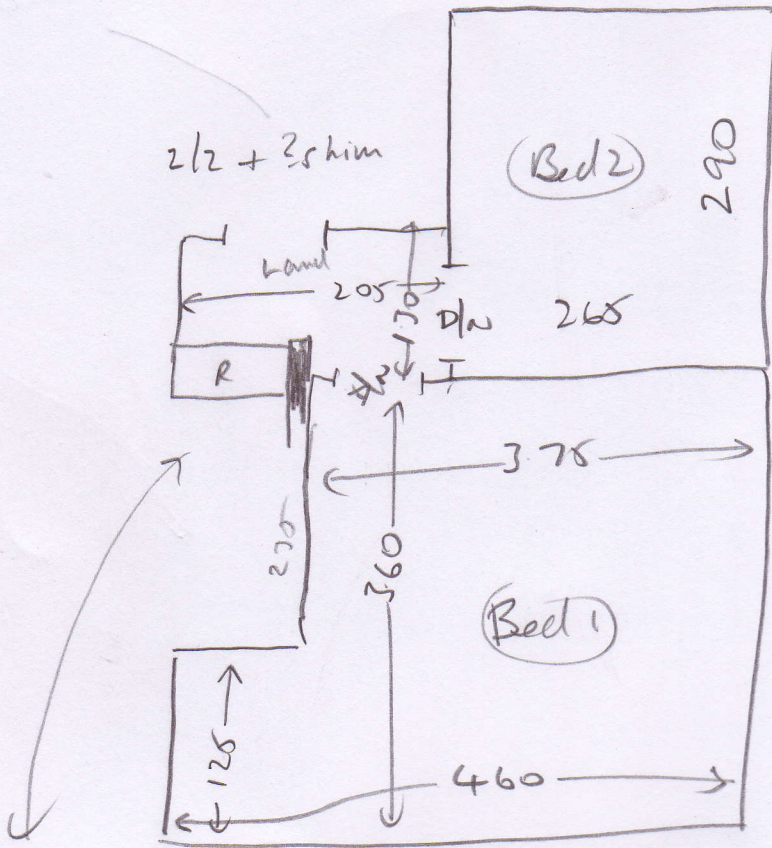 2/2 +
Bed 2
290
Land
205
130
D/W
265
R
3.75
235
360
Bed 1
125
460